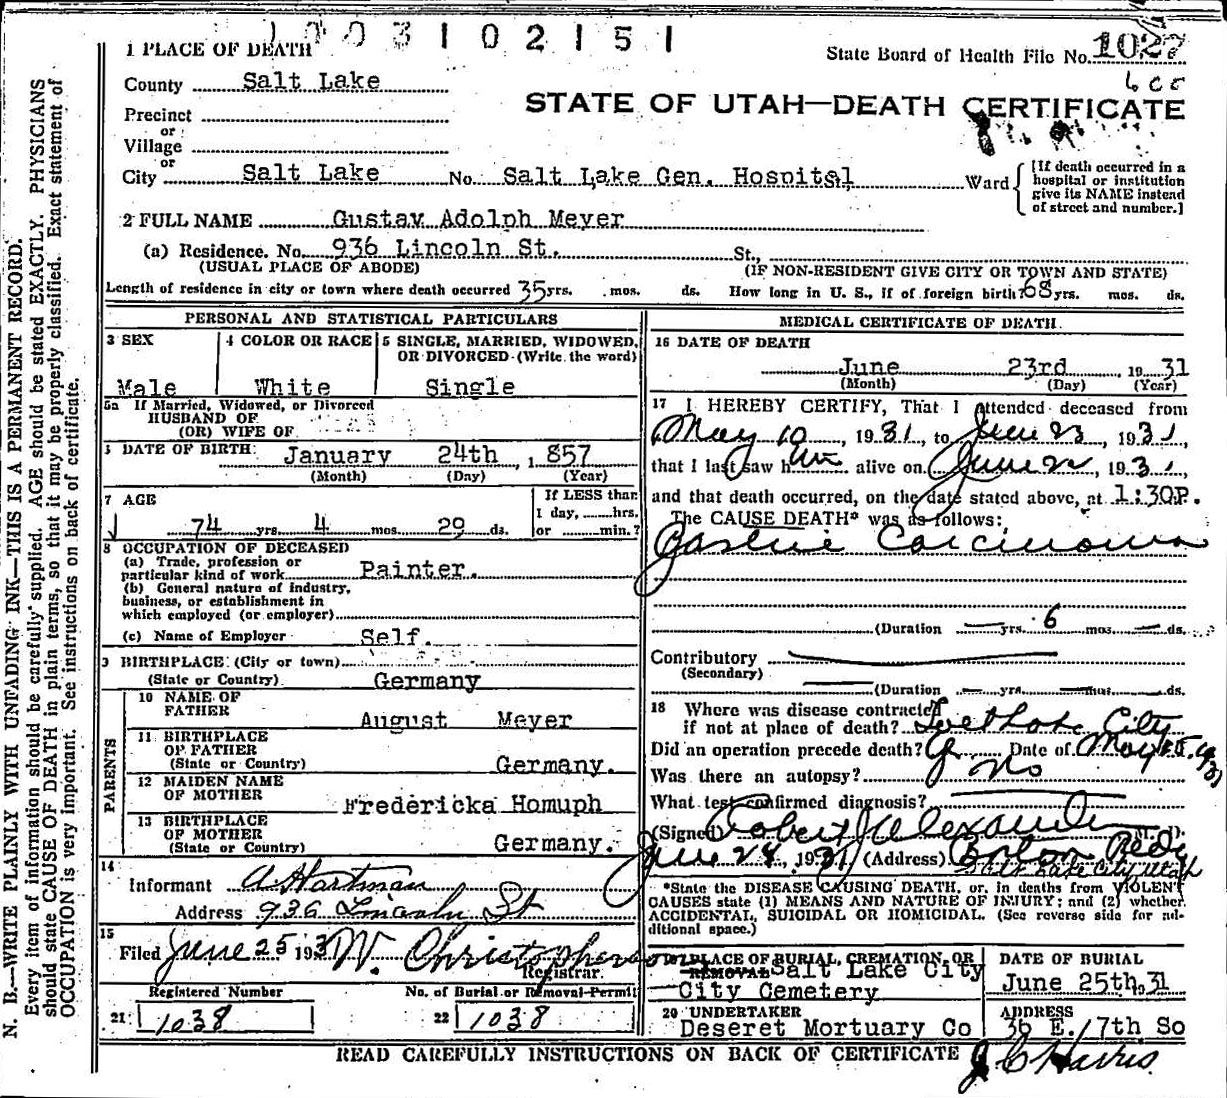 1003102151
1 PLACE OF DEATH
State Board of Health File No. 1027
County Salt Lake
STATE OF UTAH—DEATH CERTIFICATE
Precinct
or
Village
or
City Salt Lake No. Salt Lake Gen. Hospital Ward
[If death occurred in a hospital or institution give its NAME instead of street and number.]
2 FULL NAME Gustav Adolph Meyer
(a) Residence. No. 936 Lincoln St. St.,
(USUAL PLACE OF ABODE) (IF NON-RESIDENT GIVE CITY OR TOWN AND STATE)
Length of residence in city or town where death occurred 35 yrs. mos. ds. How long in U. S., if of foreign birth? 68 yrs. mos. ds.
PERSONAL AND STATISTICAL PARTICULARS
3 SEX 4 COLOR OR RACE 5 SINGLE, MARRIED, WIDOWED,
OR DIVORCED (Write the word)
Male White Single
5a If Married, Widowed, or Divorced
HUSBAND OF
(OR) WIFE OF
DATE OF BIRTH: January 24th, 1857
(Month) (Day) (Year)
7 AGE If LESS than
1 day, hrs.
74 yrs. 4 mos. 29 ds. or min.?
8 OCCUPATION OF DECEASED
(a) Trade, profession or
particular kind of work Painter.
(b) General nature of industry,
business, or establishment in
which employed (or employer)
(c) Name of Employer Self.
9 BIRTHPLACE: (City or town)
(State or Country) Germany
PARENTS
10 NAME OF
FATHER August Meyer
11 BIRTHPLACE
OF FATHER
(State or Country) Germany.
12 MAIDEN NAME
OF MOTHER Fredericka Homuph
13 BIRTHPLACE
OF MOTHER
(State or Country) Germany.
14
Informant A Hartman
Address 936 Lincoln St
15
Filed June 25 193 W. Christopherson
Registrar.
Registered Number No. of Burial or Removal Permit
21 1038 22 1038
MEDICAL CERTIFICATE OF DEATH.
16 DATE OF DEATH
June 23rd, 19 31
(Month) (Day) (Year)
17 I HEREBY CERTIFY, That I attended deceased from
May 10, 1931, to June 23, 1931,
that I last saw him alive on June 22, 1931,
and that death occurred, on the date stated above, at 1:30P.
The CAUSE DEATH* was as follows:
Gastric Carcinoma
(Duration — yrs. 6 mos. — ds.
Contributory
(Secondary)
(Duration — yrs. — mos. — ds.
18 Where was disease contracted
if not at place of death? City
Did an operation precede death? Date of May
Was there an autopsy? No
What test confirmed diagnosis?
(Signed) Robert J Alexander M. D.
June 24, 1931 (Address)
Salt Lake City, Utah
*State the DISEASE CAUSING DEATH, or, in deaths from VIOLENT
CAUSES state (1) MEANS AND NATURE OF INJURY; and (2) whether
ACCIDENTAL, SUICIDAL OR HOMICIDAL. (See reverse side for ad-
ditional space.)
PLACE OF BURIAL, CREMATION, OR
REMOVAL Salt Lake City
City Cemetery
DATE OF BURIAL
June 25th, 31
20 UNDERTAKER
Deseret Mortuary Co
ADDRESS
36 E./7th So
READ CAREFULLY INSTRUCTIONS ON BACK OF CERTIFICATE
J C Harris.
N. B.—WRITE PLAINLY WITH UNFADING INK—THIS IS A PERMANENT RECORD.
Every item of information should be carefully supplied. AGE should be stated EXACTLY. PHYSICIANS
should state CAUSE OF DEATH in plain terms, so that it may be properly classified. Exact statement of
OCCUPATION is very important. See instructions on back of certificate.